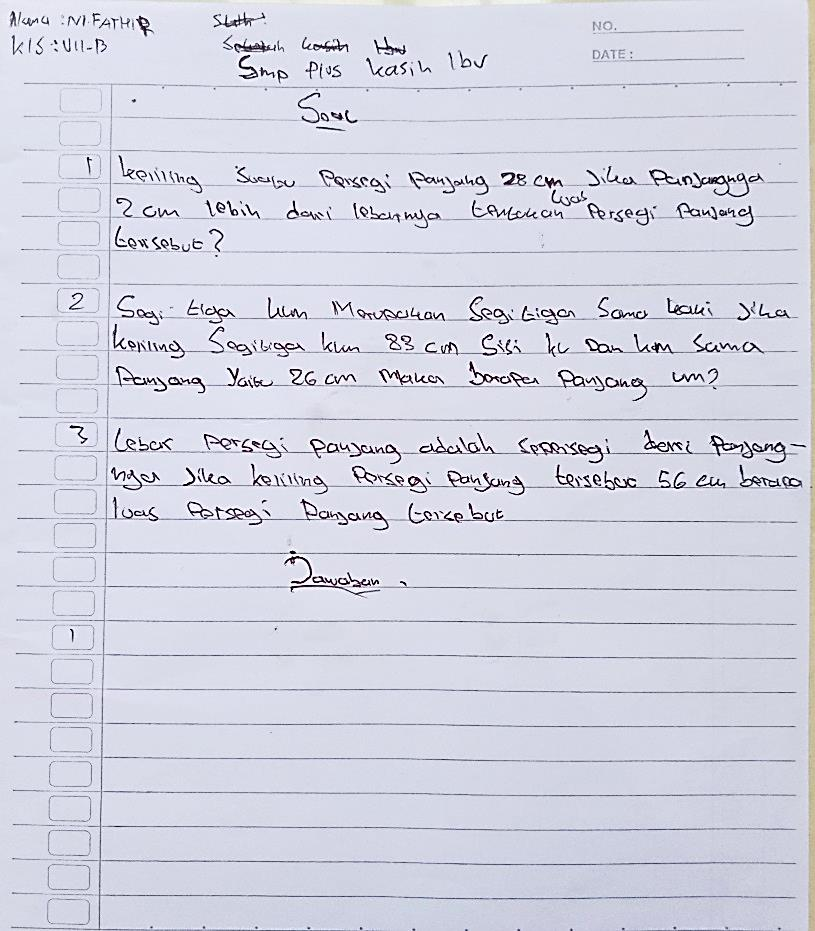 Nama : M. FATHIR
KlS : VII-B
Smp Plus kasih Ibu
NO.
DATE :
Soal
1 keliling suatu Persegi Panjang 28 cm Jika Panjangnya
2 cm lebih dari lebarnya tentukan luas Persegi Panjang
tersebut?
2 Segi tiga klm Merupakan Segi tiga Sama kaki Jika
keliling Segitiga klm 83 cm Sisi kl Dan km Sama
Panjang Yaitu 26 cm Maka berapa Panjang lm?
3 Lebar Persegi panjang adalah dari Panjang-
nya Jika keliling Persegi Panjang tersebut 56 cm berapa
luas Persegi Panjang tersebut
Jawaban .
1